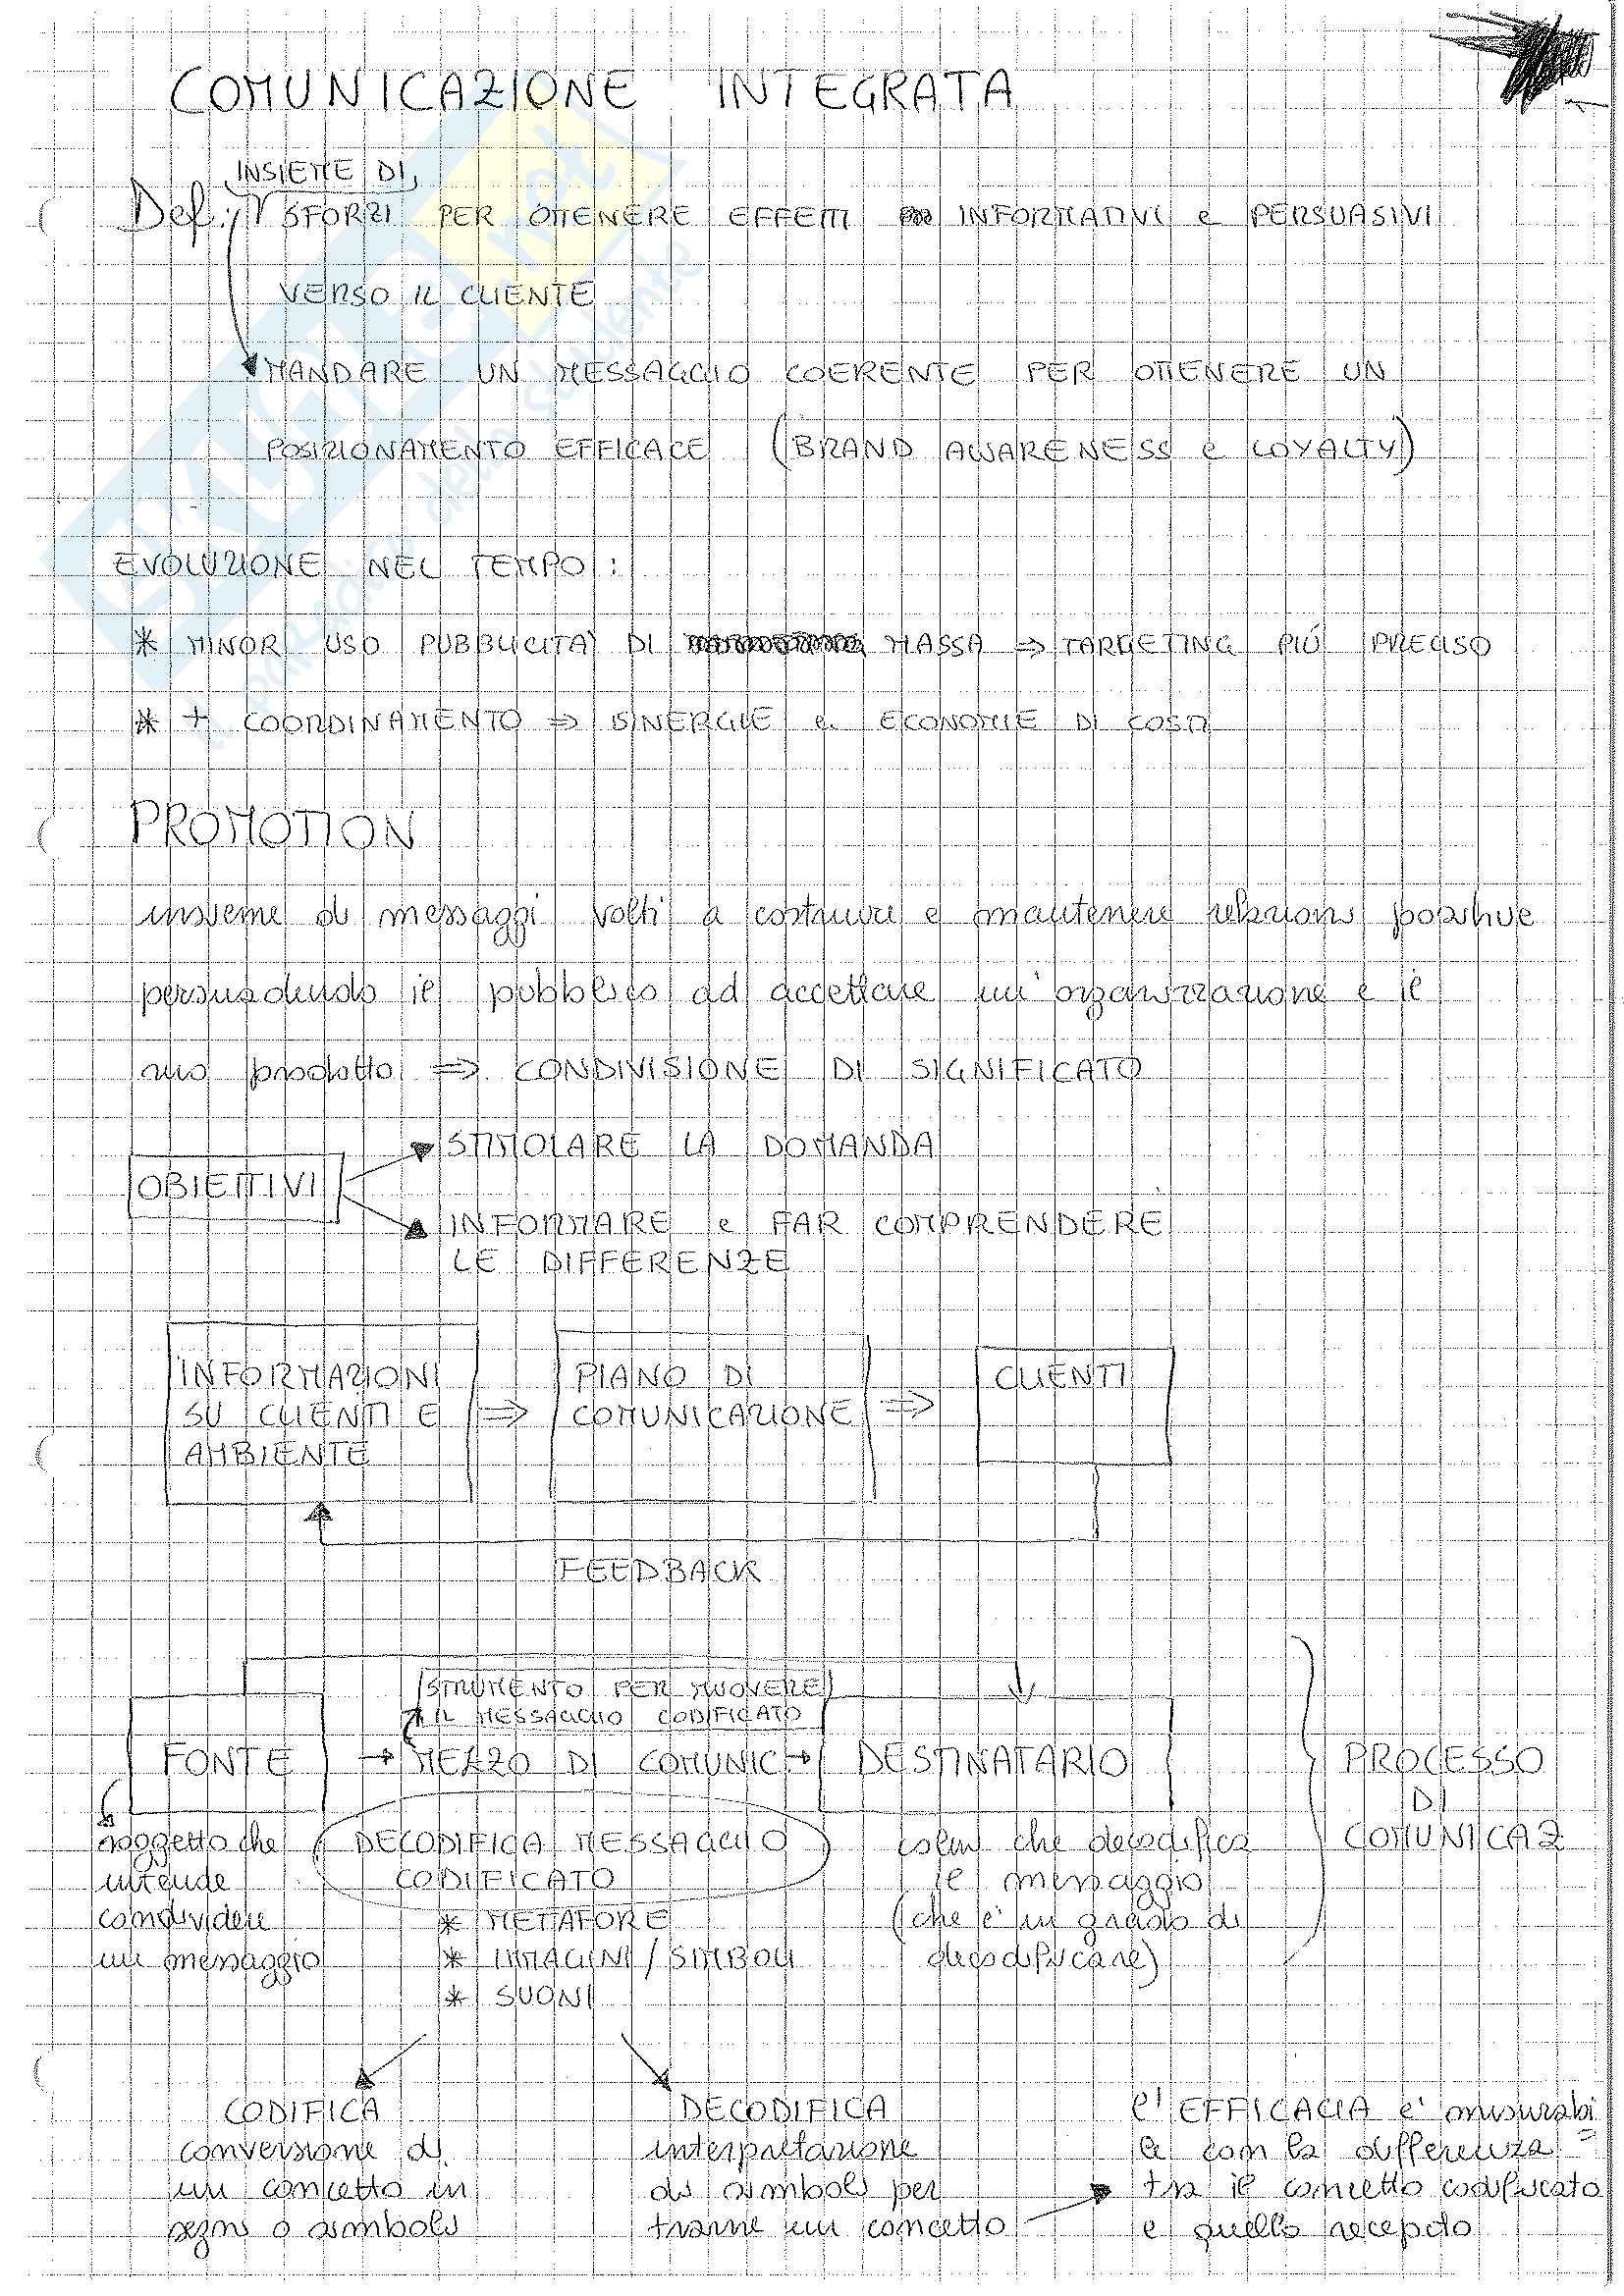 COMUNICAZIONE INTEGRATA
INSIEME DI
Def: SFORZI PER OTTENERE EFFETTI INFORMATIVI e PERSUASIVI
VERSO IL CLIENTE
MANDARE UN MESSAGGIO COERENTE PER OTTENERE UN
POSIZIONAMENTO EFFICACE (BRAND AWARENESS e LOYALTY)
EVOLUZIONE NEL TEMPO:
* MINOR USO PUBBLICITÀ DI MASSA ⇒ TARGETING PIÙ PRECISO
* + COORDINAMENTO ⇒ SINERGIE e ECONOMIE DI COSTI
PROMOTION
insieme di messaggi volti a costruire e mantenere relazioni positive
persuadendo il pubblico ad accettare un'organizzazione e il
suo prodotto ⇒ CONDIVISIONE DI SIGNIFICATO
STIMOLARE LA DOMANDA
OBIETTIVI
INFORMARE e FAR COMPRENDERE
LE DIFFERENZE
INFORMAZIONI SU CLIENTI E AMBIENTE ⇒ PIANO DI COMUNICAZIONE ⇒ CLIENTI
FEEDBACK
STRUMENTO PER MUOVERE
IL MESSAGGIO CODIFICATO
FONTE → MEZZO DI COMUNIC → DESTINATARIO
PROCESSO
DI
COMUNICAZ
soggetto che
intende
condividere
un messaggio
DECODIFICA MESSAGGIO
CODIFICATO
* METAFORE
* IMMAGINI / SIMBOLI
* SUONI
colui che decodifica
il messaggio
(che è in grado di
decodificare)
CODIFICA
conversione di
un concetto in
segni o simboli
DECODIFICA
interpretazione
di simboli per
trarne un concetto
l'EFFICACIA è misurabi
le con la differenza
tra il concetto codificato
e quello recepito